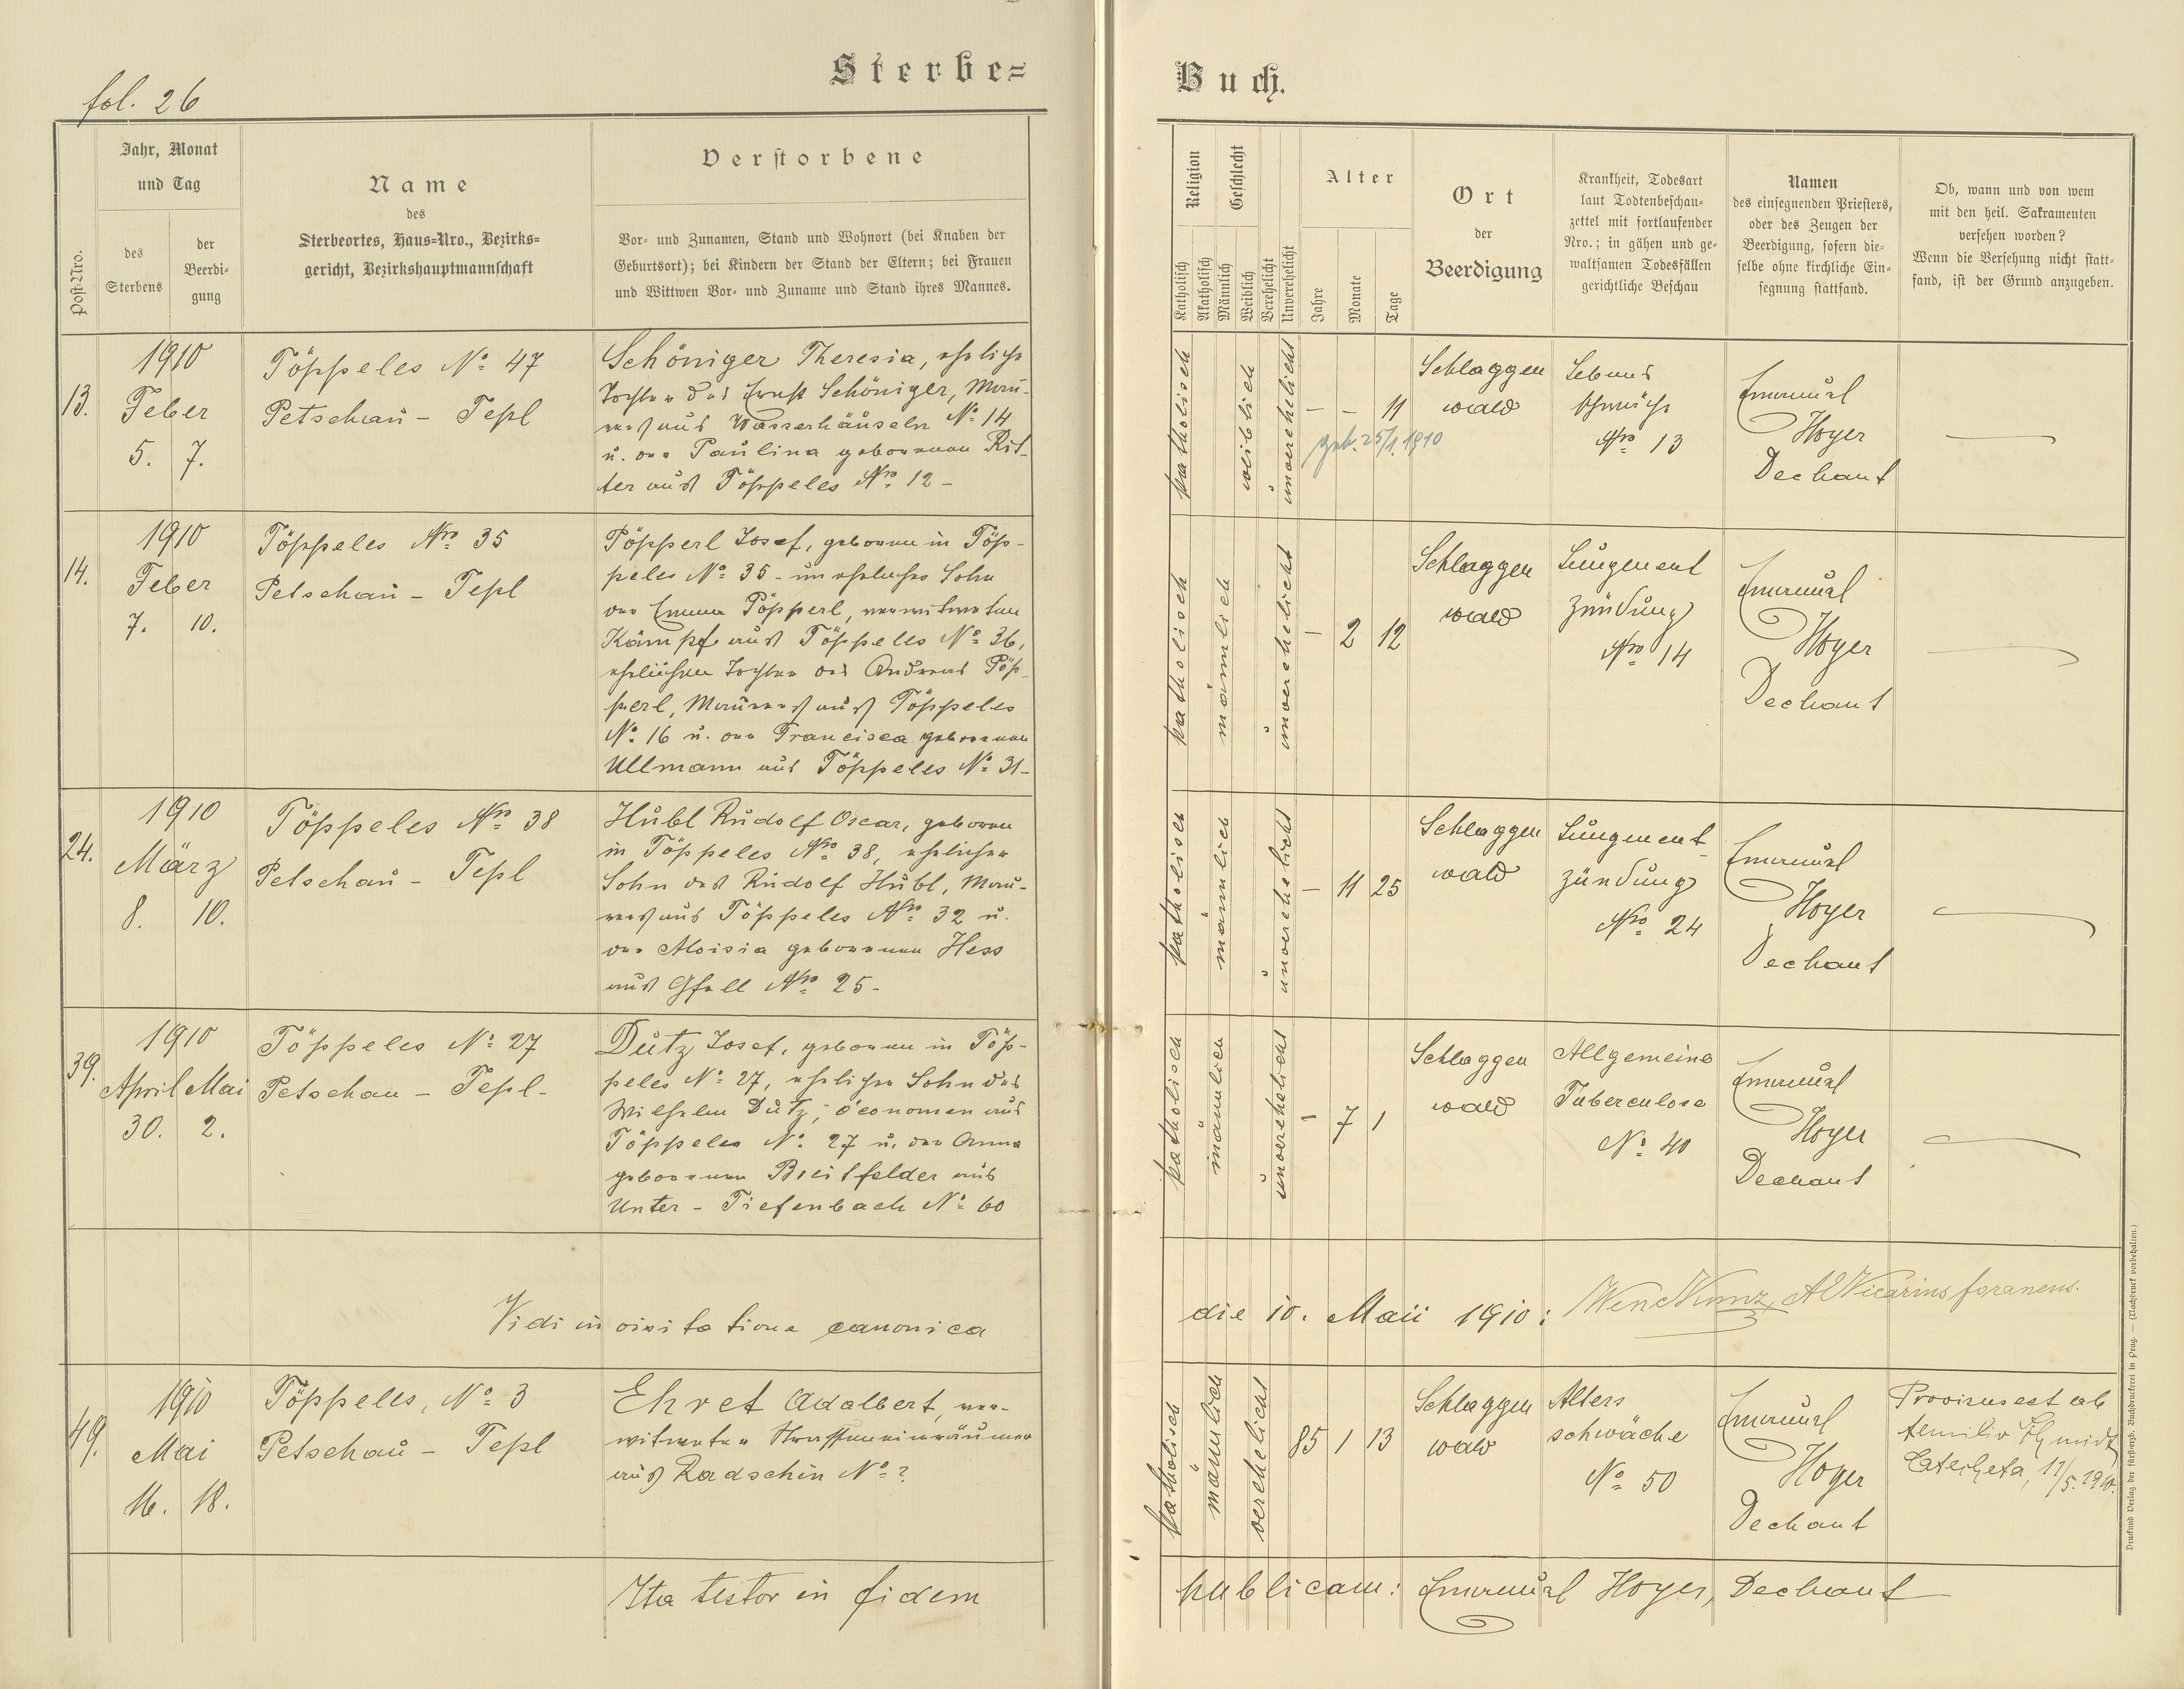 fol. 26
Sterbe=
Buch.
Post-Nro.
Jahr, Monat
und Tag
des
Sterbens
der
Beerdi-
gung
Name
des
Sterbeortes, Haus-Nro., Bezirks-
gericht, Bezirkshauptmannschaft
Verstorbene
Vor- und Zunamen, Stand und Wohnort (bei Knaben der
Geburtsort); bei Kindern der Stand der Eltern; bei Frauen
und Wittwen Vor- und Zuname und Stand ihres Mannes.
Religion
Katholisch
Akatholisch
Geschlecht
Männlich
Weiblich
Verehelicht
Unverehelicht
Alter
Jahre
Monate
Tage
Ort
der
Beerdigung
Krankheit, Todesart
laut Todtenbeschau-
zettel mit fortlaufender
Nro.; in gähen und ge-
waltsamen Todesfällen
gerichtliche Beschau
Namen
des einsegnenden Priesters,
oder des Zeugen der
Beerdigung, sofern die-
selbe ohne kirchliche Ein-
segnung stattfand.
Ob, wann und von wem
mit den heil. Sakramenten
versehen worden?
Wenn die Versehung nicht statt-
fand, ist der Grund anzugeben.
13.
1910
Feber
5. 7.
Töppeles No 47
Petschau - Tepl
Schöniger Theresia, eheliche
Tochter des Ernst Schöniger, Mau-
rers aus Wasserhäuseln No 14
u. der Paulina geborenen Rit-
ter aus Töppeles Nro 12 -
katholisch
weiblich
unverehelicht
- - 11
geb. 25/1. 1910
Schlaggen
wald
Lebens
schwäche
Nro 13
Emanuel
Hoyer
Dechant
14.
1910
Feber
7. 10.
Töppeles Nro 35
Petschau - Tepl
Pöpperl Josef, geboren in Töp-
peles No 35 - unehelicher Sohn
der Emma Pöpperl, verwitweten
Kämpf aus Töppeles No 36,
ehelichen Tochter des Andreas Pöp-
perl, Maurers aus Töppeles
No 16 u. der Francisca geborenen
Ullmann aus Töppeles No 31-
katholisch
männlich
unverehelicht
- 2 12
Schlaggen
wald
Lungenent
zündung
Nro 14
Emanuel
Hoyer
Dechant
24.
1910
März
8. 10.
Töppeles Nro 38
Petschau - Tepl
Hubl Rudolf Oscar, geboren
in Töppeles Nro 38, ehelicher
Sohn des Rudolf Hubl, Mau-
rers aus Töppeles Nro 32 u.
der Aloisia geborenen Hess
aus Gfell Nro 25-
katholisch
männlich
unverehelicht
- 11 25
Schlaggen
wald
Lungenent-
zündung
Nro 24
Emanuel
Hoyer
Dechant
39.
1910
April Mai
30. 2.
Töppeles No 27
Petschau - Tepl-
Dutz Josef, geboren in Töp-
peles No 27, ehelicher Sohn des
Wilhelm Dutz, Öconomen aus
Töppeles No 27 u. der Anna
geborenen Breitfelder aus
Unter - Tiefenbach No 60
katholisch
männlich
unverehelicht
- 7 1
Schlaggen
wald
Allgemeine
Tuberculose
No 40
Emanuel
Hoyer
Dechant
Vidi in visitatione canonica
die 10. Maii 1910: Wenc Kunz, AVicarius foraneus.
49.
1910
Mai
16. 18.
Töppeles, No 3
Petschau - Tepl
Ehret Adalbert, ver-
witweter Strasseneinräumer
aus Radschin No ?
katholisch
männlich
verehelicht
85 1 13
Schlaggen
wald
Alters
schwäche
No 50
Emanuel
Hoyer
Dechant
Provisus est ab
Catecheta, 11/5. 1910.
Ita testor in fidem
publicam: Emanuel Hoyer, Dechant
Druck und Verlag der fürsterzb. Buchdruckerei in Prag. — (Nachdruck vorbehalten.)